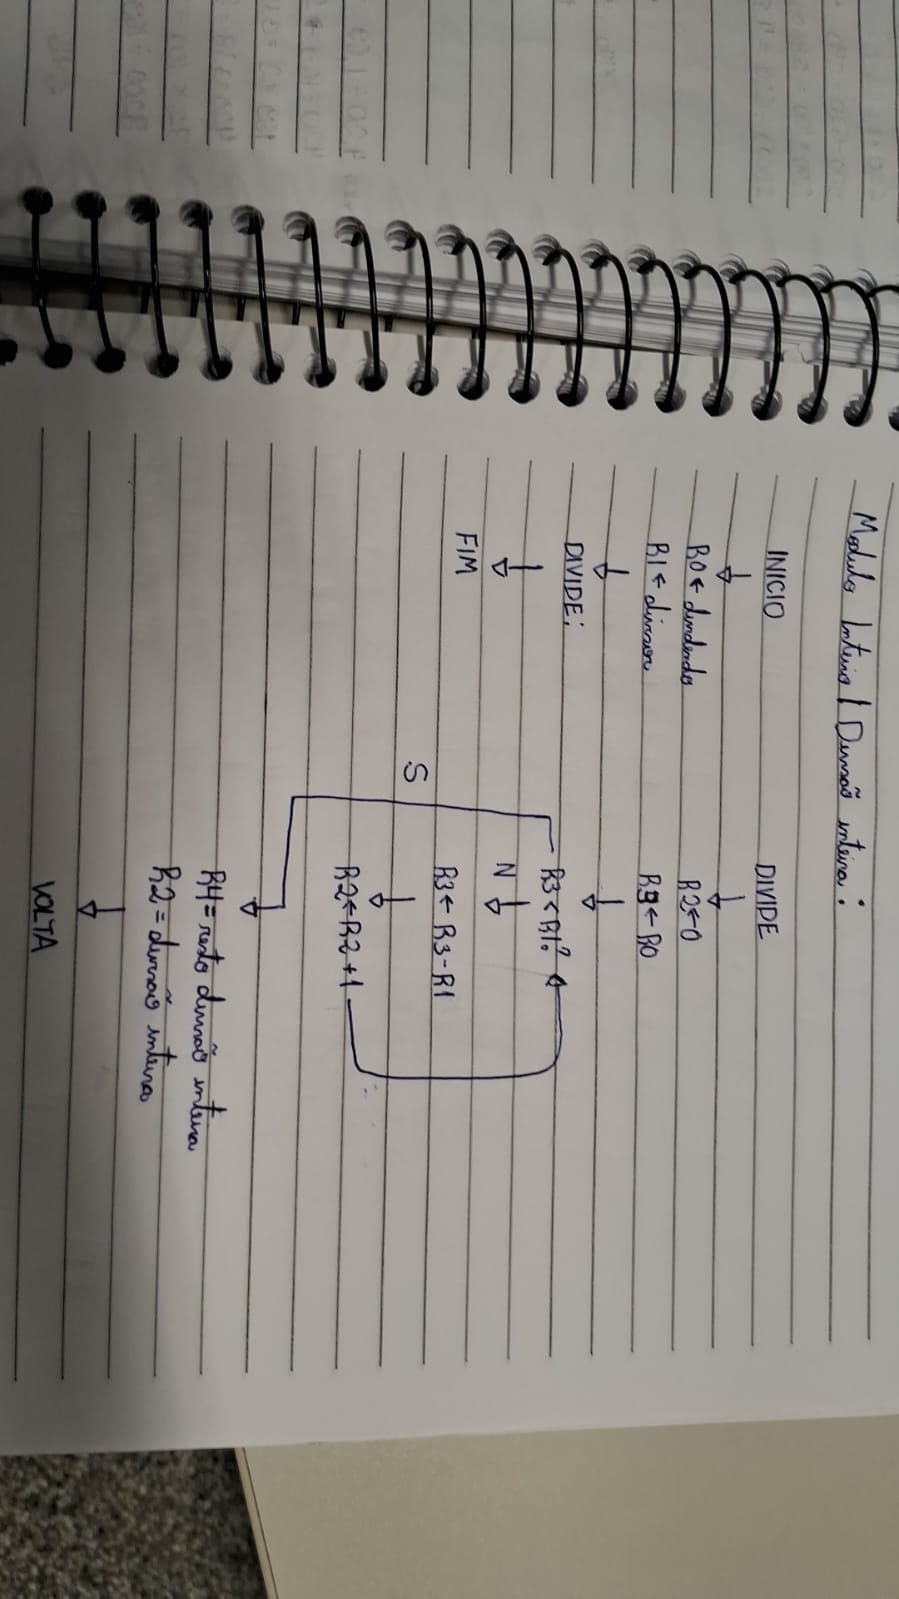 Modulo Inteiro / Divisão inteira:
INICIO
R0 ← dividendo
R1 ← divisor
DIVIDE;
FIM
DIVIDE
R2 ← 0
R3 ← R0
R3 < R1?
N
S
R3 ← R3 - R1
R2 ← R2 + 1
R4 = resto divisão inteira
R2 = divisão inteira
VOLTA